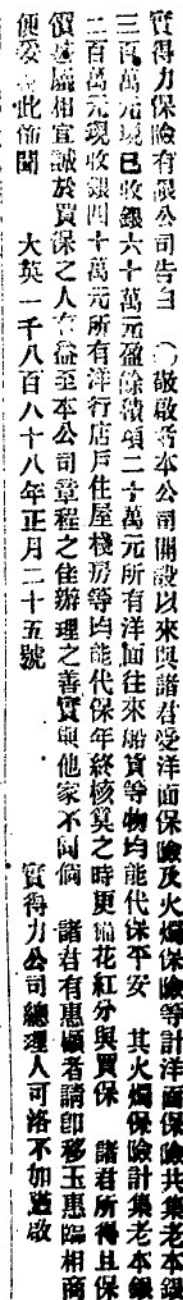 實得力保險有限公司告白 ○敬啟者本公司開設以來與諸君受洋面保險及火爥保險等計洋面保險共集老本銀
三百萬元現已收銀六十萬元盈餘積項二十萬元所有洋面往來船貨等物均能代保平安 其火爥保險計集老本銀
二百萬元現收銀四十萬元所有洋行店戶住屋棧房等均能代保年終核算之時更備花紅分與買保 諸君所得且保
價 廉相宜誠於買保之人有益至本公司章程之佳辦理之善實與他家不同倘 諸君有惠顧者請卽移玉惠臨相商
便妥 此佈聞 大英一千八百八十八年正月二十五號 實得力公司總理人可洛不加 啟